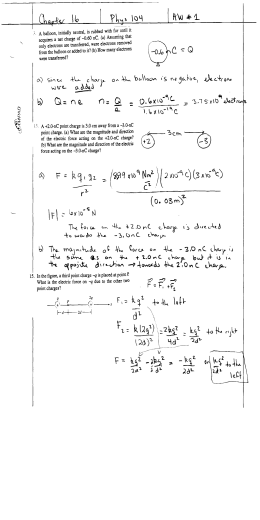 Chapter 16 Phys 104 HW # 1
A balloon, initially neutral, is rubbed with fur until it
acquires a net charge of -0.60 nC. (a) Assuming that
only electrons are transferred, were electrons removed
from the balloon or added to it? (b) How many electrons
were transferred?
-0.6nC = Q
a) since the charge on the balloon is negative, electrons
were added
b) Q = ne n = Q/e = 0.6x10⁻⁹C / 1.6x10⁻¹⁹C = 3.75x10⁹ electrons
A +2.0-nC point charge is 3.0 cm away from a -3.0-nC
point charge. (a) What are the magnitude and direction
of the electric force acting on the +2.0-nC charge?
(b) What are the magnitude and direction of the electric
force acting on the -3.0-nC charge?
3cm
+2 -3
a) F = kq₁q₂/r² = (8.99x10⁹ Nm²/C²)(2x10⁻⁹C)(3x10⁻⁹C) / (0.03m)²
|F| = 6x10⁻⁵ N
The force on the +2.0nC charge is directed
towards the -3.0nC charge
b) The magnitude of the force on the -3.0nC charge is
the same as on the +2.0nC charge but it is in
the opposite direction → towards the 2.0nC charge.
In the figure, a third point charge -q is placed at point P.
What is the electric force on -q due to the other two
point charges?
F = F₁ + F₂
F₁ = kq²/d² to the left
F₂ = k(2q²)/(2d)² = 2kq²/4d² = kq²/2d² to the right
F = = -kq²/2d² or kq²/2d² to the
left